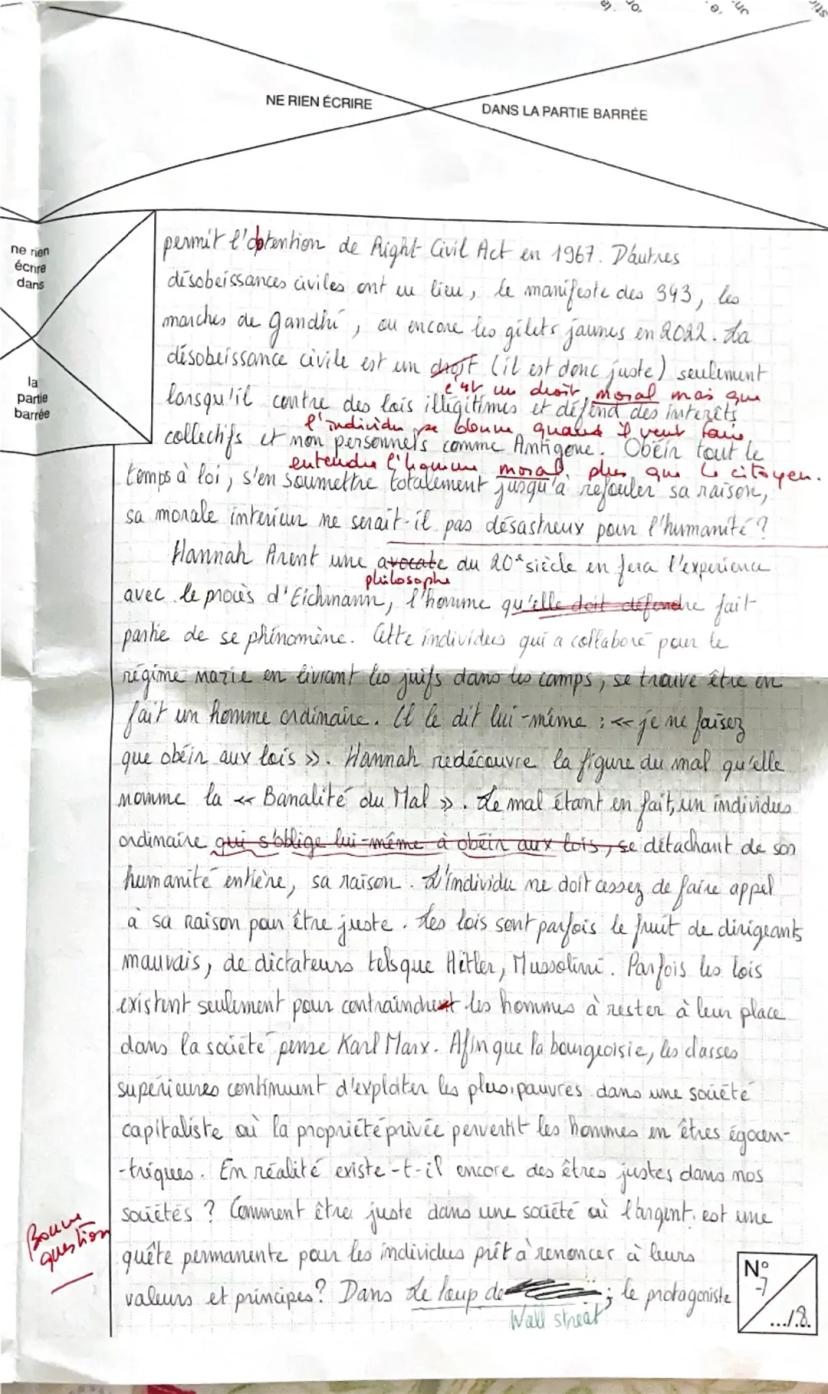 NE RIEN ÉCRIRE DANS LA PARTIE BARRÉE
ne rien
écrire
dans
la
partie
barrée
permit l'obtention de Right Civil Act en 1967. D'autres
désobeissances civiles ont eu lieu, le manifeste des 343, les
marches de Gandhi, ou encore les gilets jaunes en 2022. La
désobeissance civile est un droit (il est donc juste) seulement
c'est un droit moral mais que
lorsqu'il contre des lois illégitimes et défend des interêts
l'individu se donne quand il veut faire
collectifs et non personnels comme Antigone. Obéir tout le
entendre l'homme moral, plus que le citoyen.
temps à loi, s'en soumettre totalement jusqu'à refouler sa raison,
sa morale intérieur ne serait-il pas désastreux pour l'humanité ?
Hannah Arent une avocate du 20e siècle en fera l'expérience
philosophe
avec le procès d'Eichmann, l'homme qu'elle doit défendre fait
partie de se phénomène. Cette individus qui a collaboré pour le
régime nazie en livrant les juifs dans les camps, se trouve être en
fait un homme ordinaire. Il le dit lui-même : << je ne faisez
que obéir aux lois >>. Hannah redécouvre la figure du mal qu'elle
nomme la << Banalité du Mal >>. Le mal étant en fait, un individus
ordinaire qui s'oblige lui-même à obéir aux lois, se détachant de son
humanité entière, sa raison. L'individu ne doit cessez de faire appel
à sa raison pour être juste. Les lois sont parfois le fruit de dirigeants
mauvais, de dictateurs tels que Hitler, Mussolini. Parfois les lois
existent seulement pour contraindre les hommes à rester à leur place
dans la société pense Karl Marx. Afin que la bourgeoisie, les classes
supérieures continuent d'exploiter les plus pauvres dans une société
capitaliste où la propriété privée pervertit les hommes en êtres égocen-
-triques. En réalité existe-t-il encore des êtres justes dans nos
sociétés ? Comment être juste dans une société où l'argent est une
Bonne
question
quête permanente pour les individus prêt à renoncer à leurs
valeurs et principes ? Dans Le loup de ; le protagoniste
Wall street
N°
7
.../8.